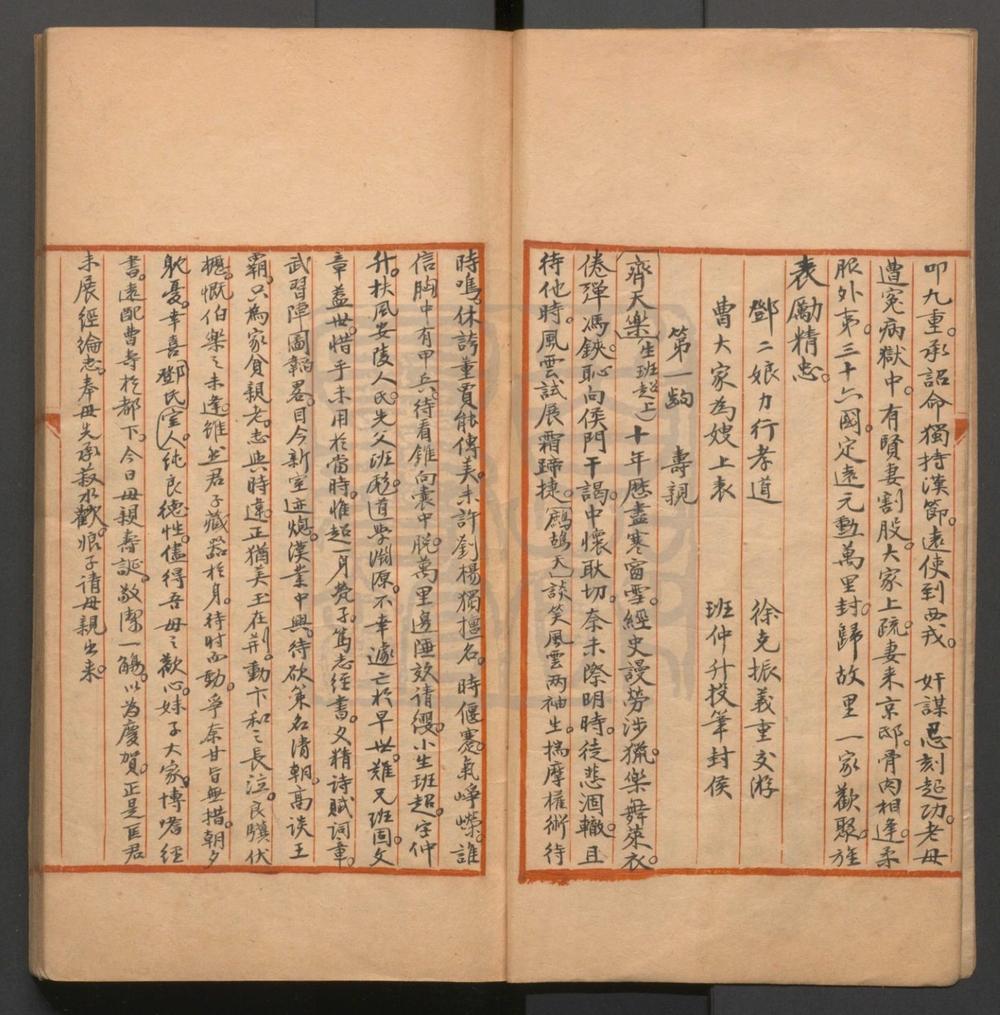 叩九重。承詔命獨持漢節。遠使到西戎。　奸謀忌刻起功。老母
遭冤病獄中。有賢妻割股。大家上疏。妻来京邸。骨肉相逢。柔
服外夷。三十六國。定遠元勳萬里封。歸故里一家歡聚。旌
表勵精忠。
鄧二娘力行孝道　徐克振義重交游
曹大家為嫂上表　班仲升投筆封侯
第一齣　壽親
齊天樂（生班超上）十年歷盡寒窗雪。經史謾勞涉獵。樂舞萊衣。
倦弹馮鋏。恥向侯門干謁。中懷耿切。奈未際明時。徒悲涸轍。且
待他時。風雲試展霜蹄捷。鷓鴣天談笑風雲两袖生。揣摩權術待
時鳴。休誇董賈能傳美。未許劉楊獨擅名。時偃蹇。氣崢嶸。誰
信胸中有甲兵。待看錐向囊中脱。萬里邊陲效请纓。小生班超。字仲
升。扶風安陵人氏。先父班彪。道学渊源。不幸遽亡於早世。难兄班固。文
章盖世。惜乎未用於當時。惟超一身煢孑。篤志經書。又精詩賦詞章。
武習陣圖韜畧。目今新室迹熄。漢業中興。待欲策名清朝。高談王
霸。只為家貧親老。志與時違。正猶美玉在荆。動卞和之長泣。良驥伏
櫪。慨伯樂之未逢。雖然君子藏器於身。待时而動。争奈甘旨無措。朝夕
躭憂。幸喜鄧氏室人。純良德性。儘得吾母之歡心。妹子大家。博嗜經
書。遠配曹寿於都下。今日母親壽誕。敬潔一觴。以为慶賀。正是匡君
未展經綸志。奉母先承菽水歡。娘子请母親出来。